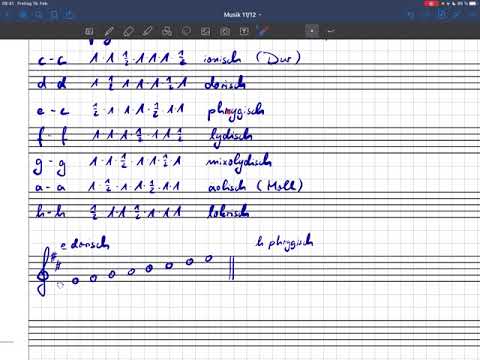 09:41 Freitag 19. Feb.
Musik 11/12
c - c 1 1 ½ 1 1 1 ½ ionisch (Dur)
d - d 1 ½ 1 1 1 ½ 1 dorisch
e - e ½ 1 1 1 ½ 1 1 phrygisch
f - f 1 1 1 ½ 1 1 ½ lydisch
g - g 1 1 ½ 1 1 ½ 1 mixolydisch
a - a 1 ½ 1 1 ½ 1 1 äolisch (Moll)
h - h ½ 1 1 ½ 1 1 1 lokrisch
e dorisch h phrygisch